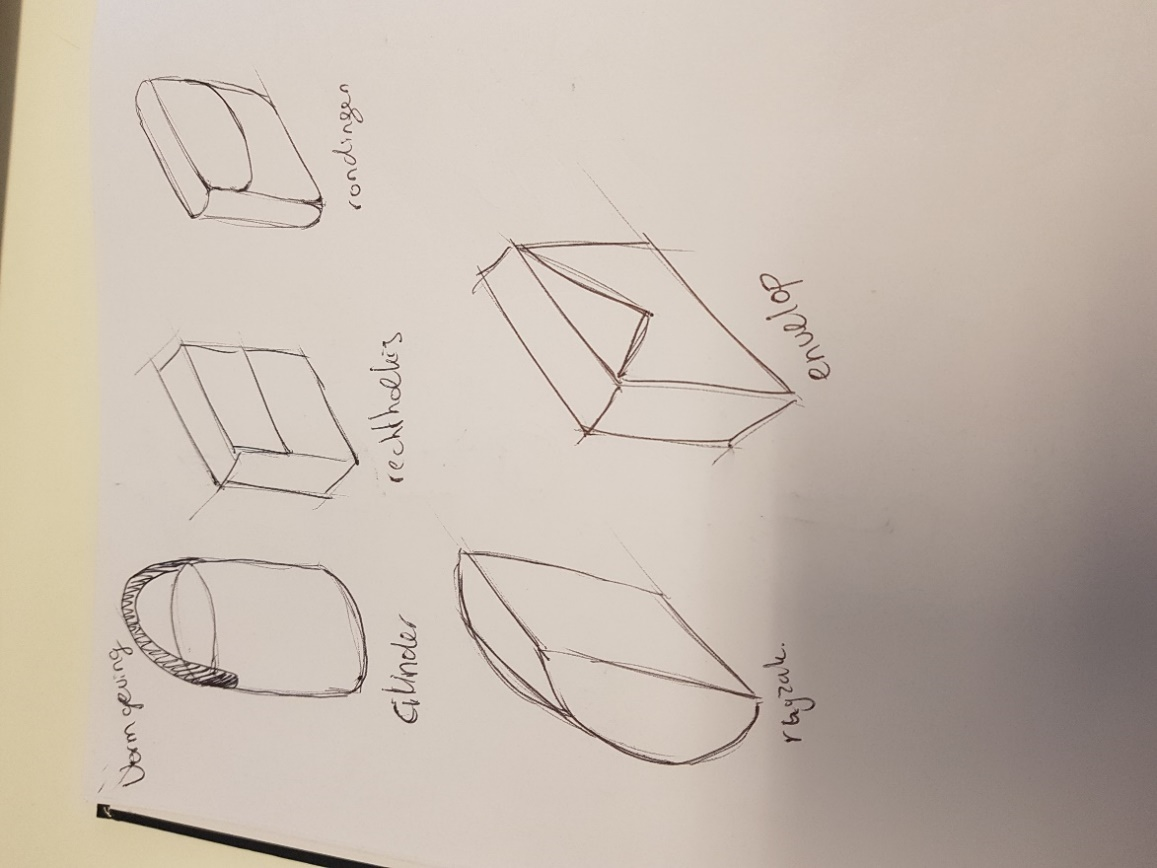 Vormgeving
Cilinder
rechthoekig
rondingen
rugzak.
envelop